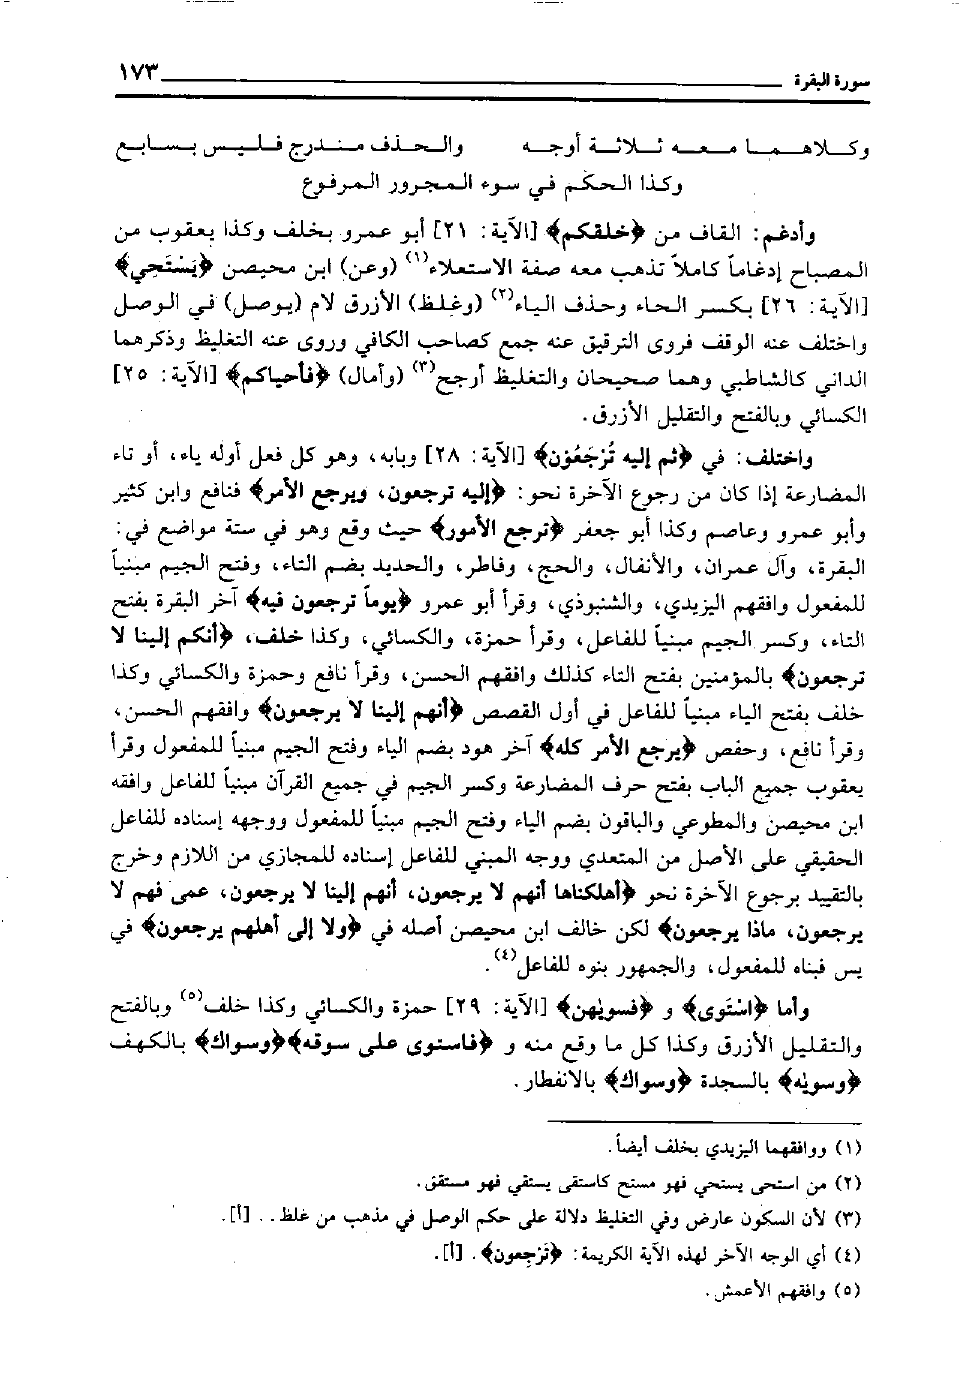 سورة البقرة ١٧٣
وكلاهما معه ثلاثة أوجه والحذف مندرج فليس بسابع
وكذا الحكم في سوء المجرور المرفوع
وأدغم: القاف من ﴿خلقكم﴾ [الآية: ٢١] أبو عمرو بخلف وكذا يعقوب من
المصباح إدغاماً كاملاً تذهب معه صفة الاستعلاء(١) (وعن) ابن محيصن ﴿يَسْتَحِي﴾
[الآية: ٢٦] بكسر الحاء وحذف الياء(٢) (وغلظ) الأزرق لام (يوصل) في الوصل
واختلف عنه الوقف فروى الترقيق عنه جمع كصاحب الكافي وروى عنه التغليظ وذكرهما
الداني كالشاطبي وهما صحيحان والتغليظ أرجح(٣) (وأمال) ﴿فأحياكم﴾ [الآية: ٢٥]
الكسائي وبالفتح والتقليل الأزرق.
واختلف: في ﴿ثم إليه تُرْجَعُون﴾ [الآية: ٢٨] وبابه، وهو كل فعل أوله ياء، أو تاء
المضارعة إذا كان من رجوع الآخرة نحو: ﴿إليه ترجعون، ويرجع الأمر﴾ فنافع وابن كثير
وأبو عمرو وعاصم وكذا أبو جعفر ﴿ترجع الأمور﴾ حيث وقع وهو في ستة مواضع في:
البقرة، وآل عمران، والأنفال، والحج، وفاطر، والحديد بضم التاء، وفتح الجيم مبنياً
للمفعول وافقهم اليزيدي، والشنبوذي، وقرأ أبو عمرو ﴿يوماً ترجعون فيه﴾ آخر البقرة بفتح
التاء، وكسر الجيم مبنياً للفاعل، وقرأ حمزة، والكسائي، وكذا خلف، ﴿أنكم إلينا لا
ترجعون﴾ بالمؤمنين بفتح التاء كذلك وافقهم الحسن، وقرأ نافع وحمزة والكسائي وكذا
خلف بفتح الياء مبنياً للفاعل في أول القصص ﴿أنهم إلينا لا يرجعون﴾ وافقهم الحسن،
وقرأ نافع، وحفص ﴿يرجع الأمر كله﴾ آخر هود بضم الياء وفتح الجيم مبنياً للمفعول وقرأ
يعقوب جميع الباب بفتح حرف المضارعة وكسر الجيم في جميع القرآن مبنياً للفاعل وافقه
ابن محيصن والمطوعي والباقون بضم الياء وفتح الجيم مبنياً للمفعول ووجهه إسناده للفاعل
الحقيقي على الأصل من المتعدي ووجه المبني للفاعل إسناده للمجازي من اللازم وخرج
بالتقييد برجوع الآخرة نحو ﴿أهلكناها أنهم لا يرجعون، أنهم إلينا لا يرجعون، عمى فهم لا
يرجعون، ماذا يرجعون﴾ لكن خالف ابن محيصن أصله في ﴿ولا إلى أهلهم يرجعون﴾ في
يس فبناه للمفعول، والجمهور بنوه للفاعل(٤).
وأما ﴿اسْتَوى﴾ و ﴿فسويٰهن﴾ [الآية: ٢٩] حمزة والكسائي وكذا خلف(٥) وبالفتح
والتقليل الأزرق وكذا كل ما وقع منه و ﴿فاستوى على سوقه﴾﴿وسواك﴾ بالكهف
﴿وسويٰه﴾ بالسجدة ﴿وسواك﴾ بالانفطار.
(١) ووافقهما اليزيدي بخلف أيضاً.
(٢) من استحى يستحي فهو مستح كاستقى يستقي فهو مستقق.
(٣) لأن السكون عارض وفي التغليظ دلالة على حكم الوصل في مذهب من غلظ.. [أ].
(٤) أي الوجه الآخر لهذه الآية الكريمة: ﴿تَرْجِعون﴾. [أ].
(٥) وافقهم الأعمش.